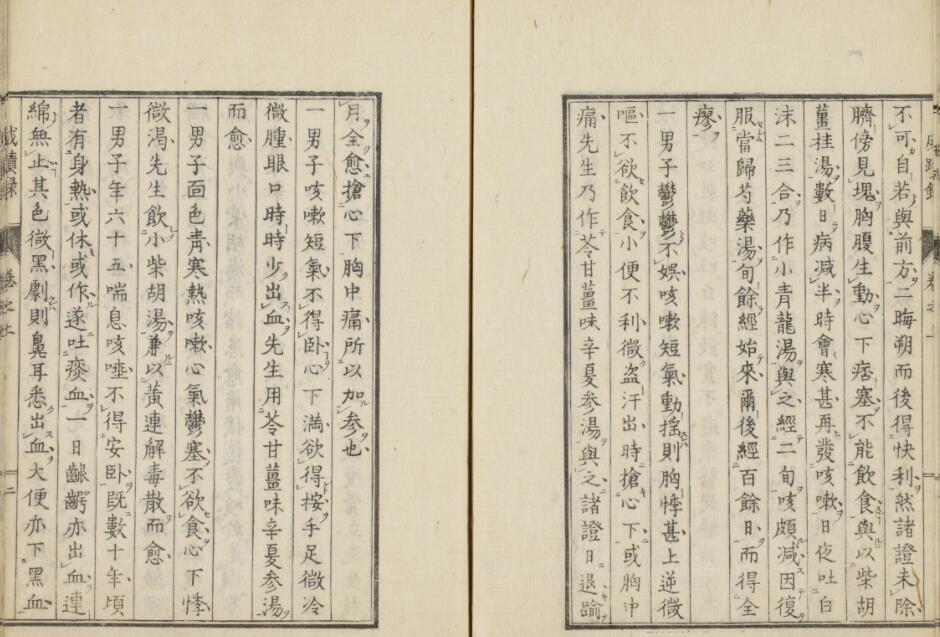 不可自若與前方二晦朔而後得快利然諸證未除
臍傍見塊胸腹生動心下痞塞不能飲食與以柴胡
薑桂湯數日病減半時會寒甚再發咳嗽日夜吐白
沫二三合乃作小青龍湯與之經二旬咳頗減因復
服當歸芍藥湯旬餘經始來爾後經百餘日而得全
瘳
一男子鬱鬱不娛咳嗽短氣動搖則胸悸甚上逆微
嘔不欲飲食小便不利微盗汗出時搶心下或胸中
痛先生乃作苓甘薑味辛夏参湯與之諸證日退踰
月全愈搶心下胸中痛所以加参也
一男子咳嗽短氣不得臥心下満欲得按手足微冷
微腫眼口時時少出血先生用苓甘薑味辛夏参湯
而愈
一男子面色青寒熱咳嗽心氣鬱塞不欲食心下悸
微渇先生飲小柴胡湯兼以黄連解毒散而愈
一男子年六十五喘息咳唾不得安臥既數十年頃
者有身熱或休或作遂吐痰血一日齦齶亦出血連
綿無止其色微黒劇則鼻耳悉出血大便亦下黒血
成蹟録
巻之上